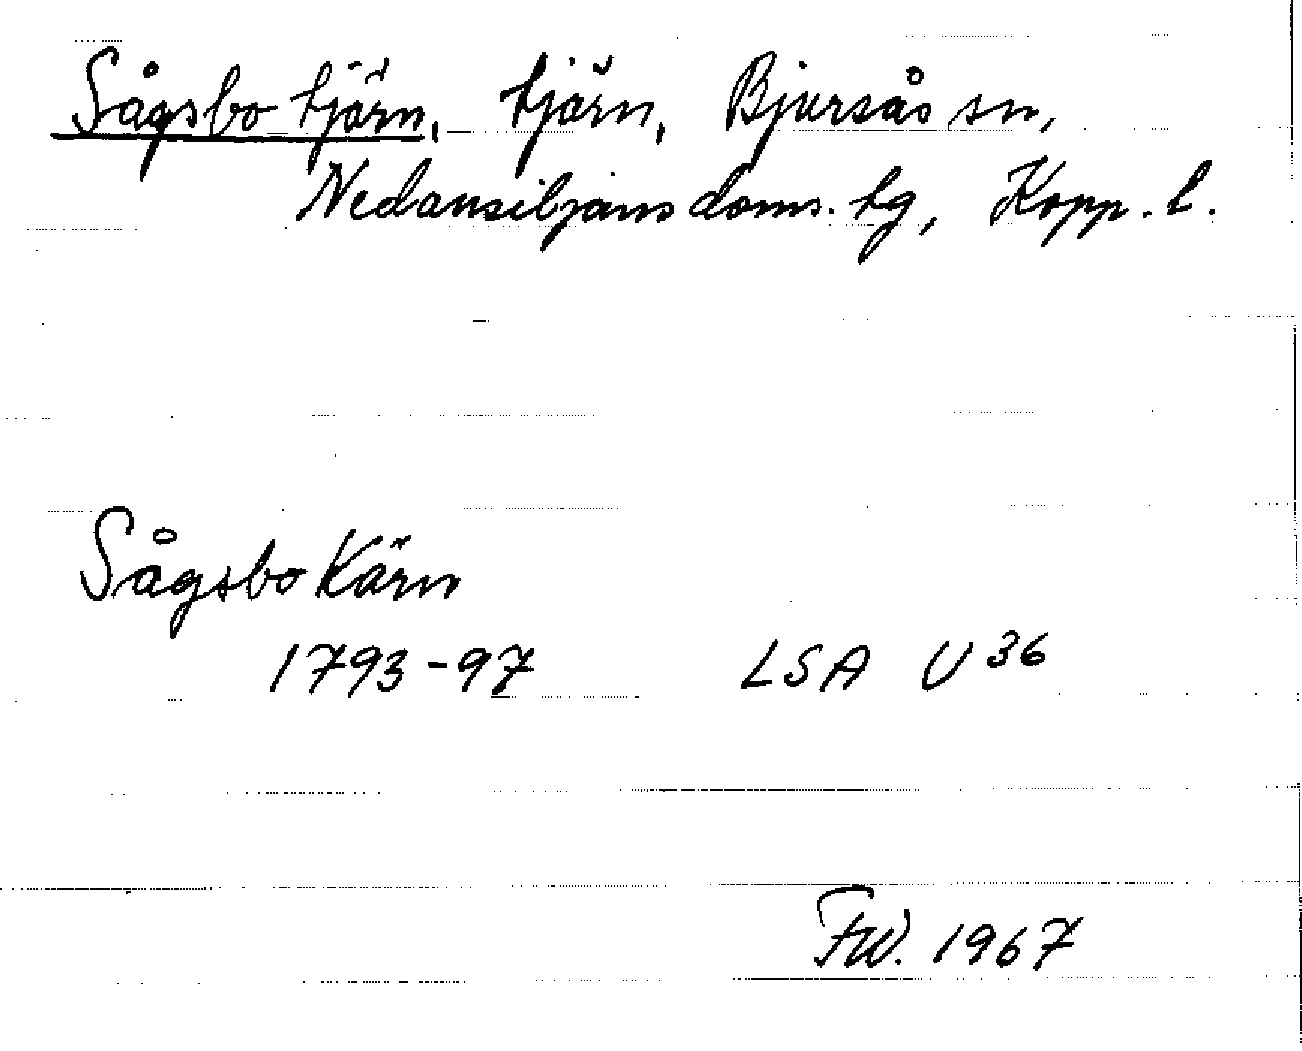 Sågsbo tjärn, tjärn, Bjursås sn,
Nedansiljans doms. tg, Kopp. l.
Sågsbo Kärn
1793-97 LSA U 36
FW. 1967